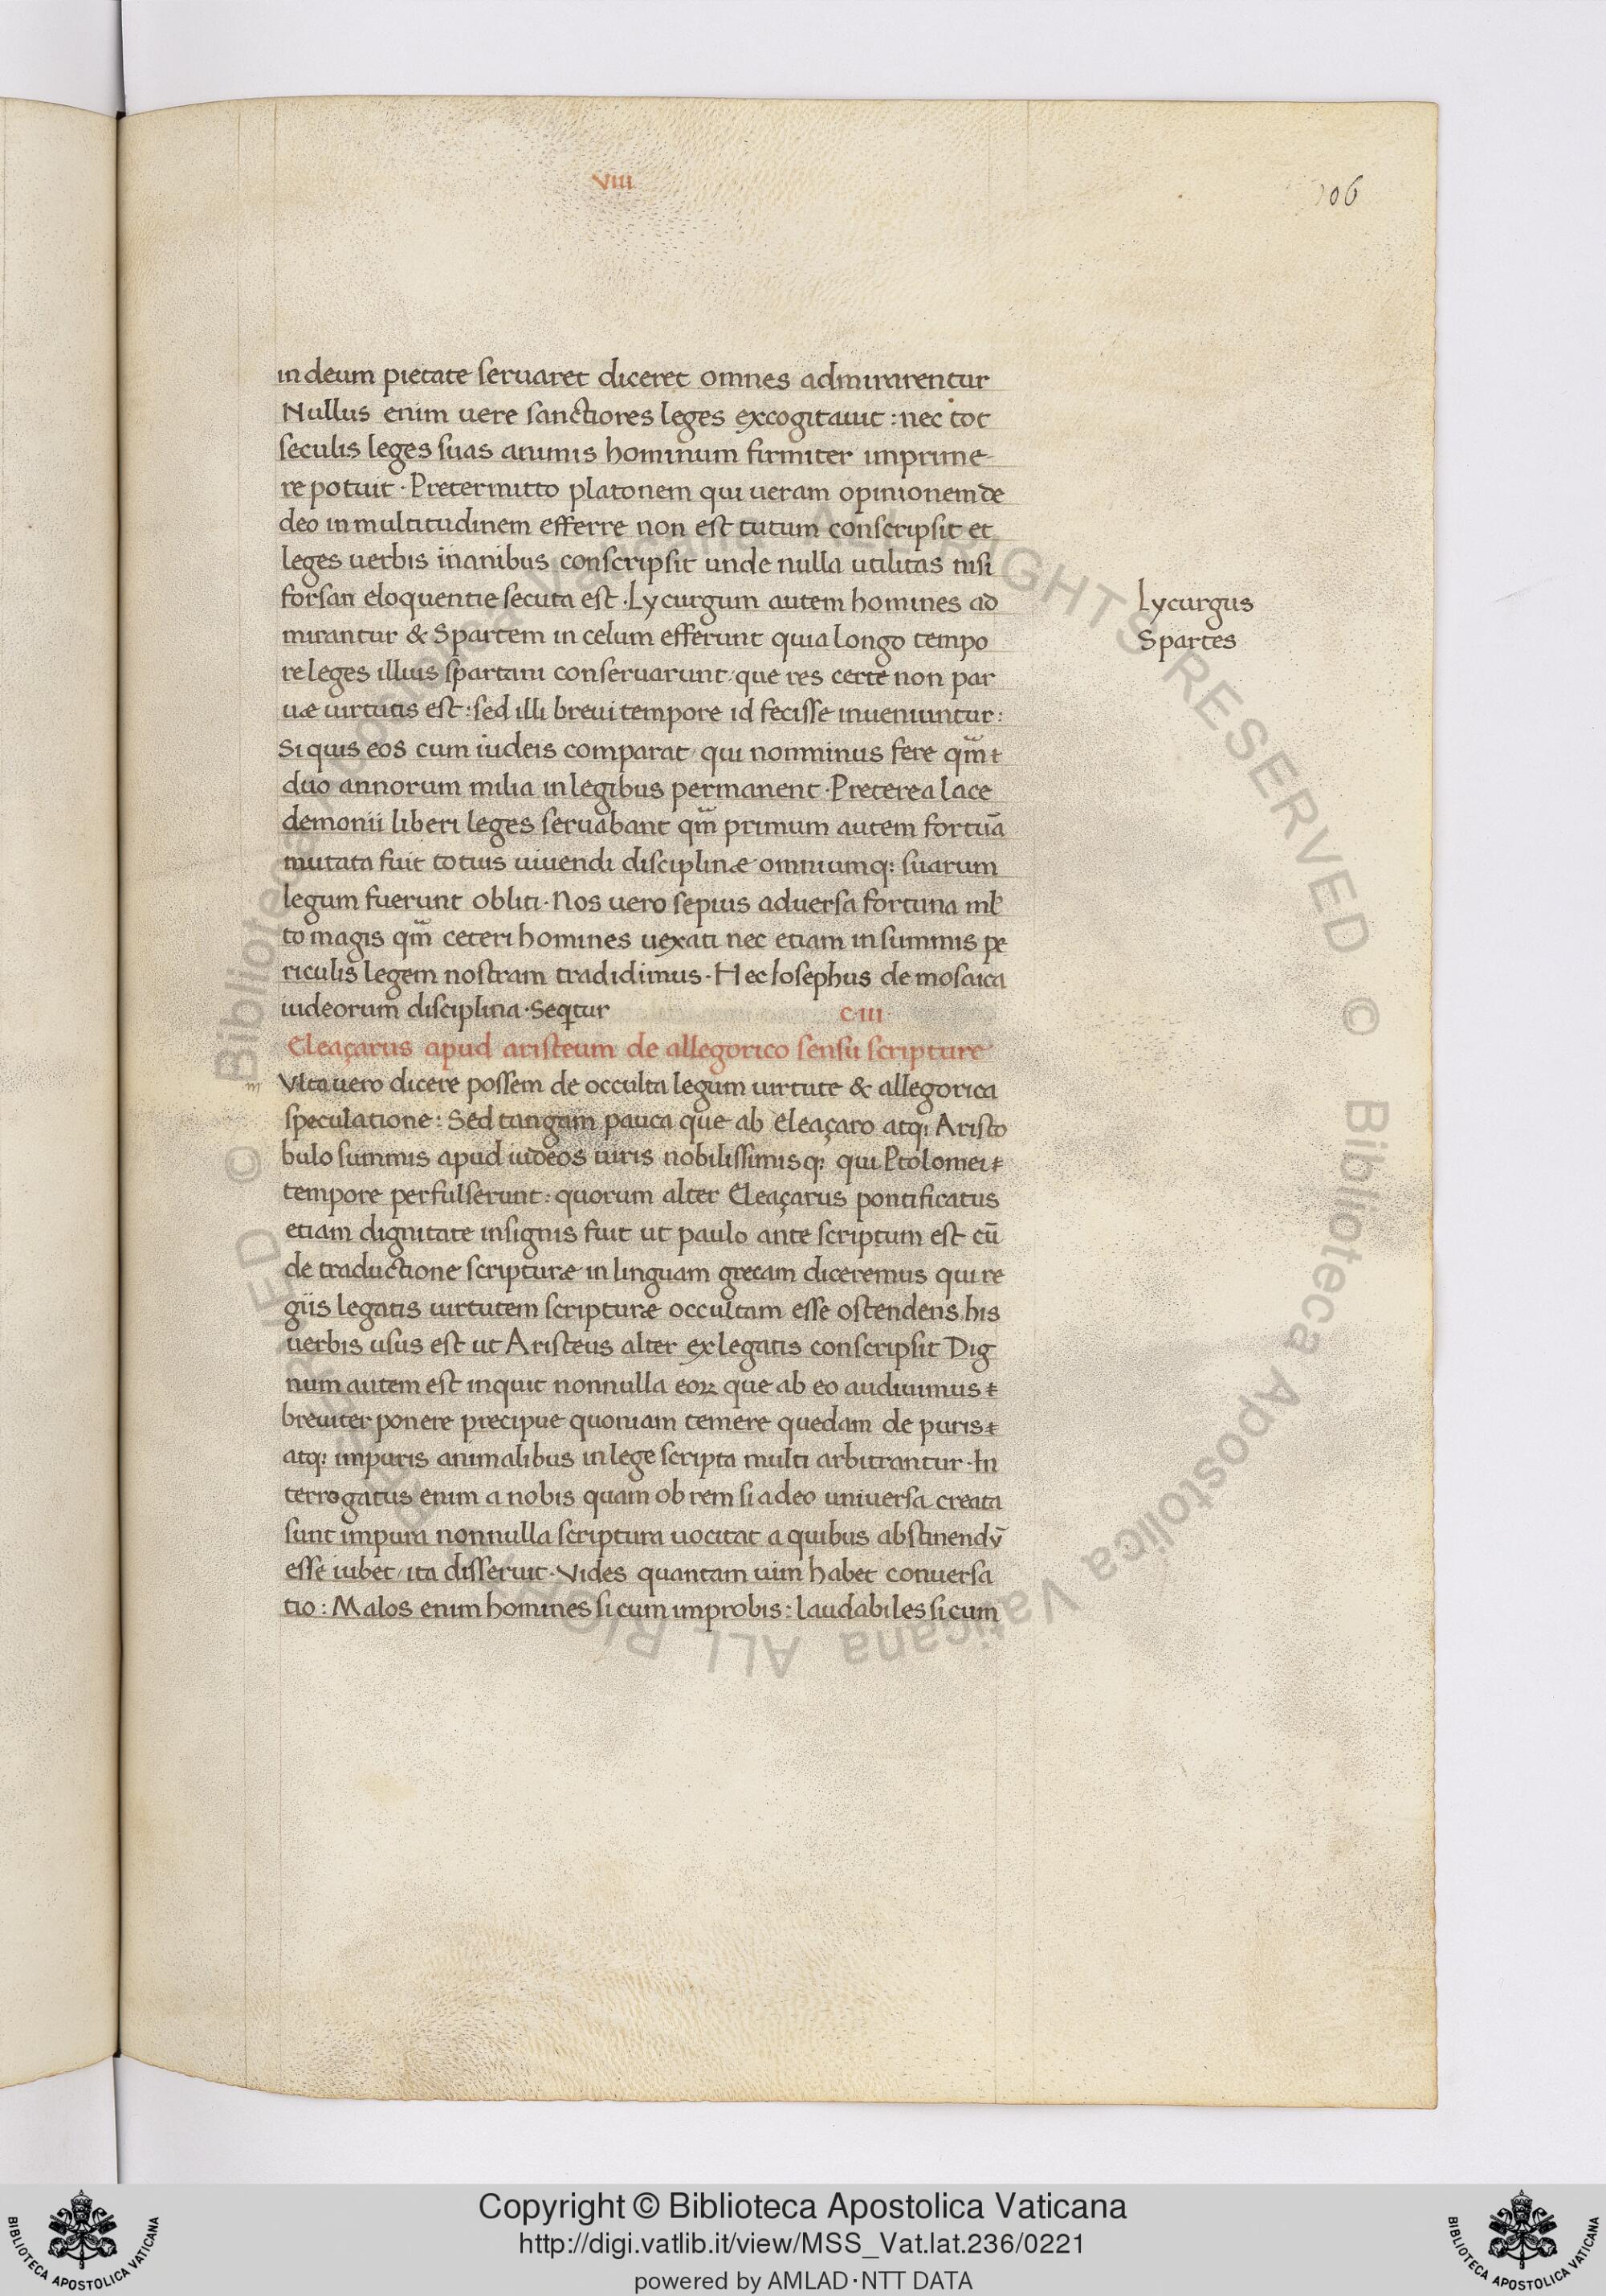 VIII
106
in deum pietate seruaret diceret omnes admirarentur
Nullus enim uere sanctiores leges excogitauit : nec tot
seculis leges suas animis hominum firmiter imprime
re potuit · Pretermitto platonem qui ueram opinionem de
deo in multitudinem efferre non est tutum conscripsit et
leges uerbis inanibus conscripsit unde nulla utilitas nisi
forsan eloquentie secuta est · Lycurgum autem homines ad
mirantur & Spartem in celum efferunt quia longo tempo
re leges illius spartani conseruarunt: que res certe non par
uæ uirtutis est : sed illi breui tempore id fecisse inueniuntur :
Si quis eos cum iudeis comparat qui non minus fere qm̄
duo annorum milia in legibus permanent · Preterea lace
demonii liberi leges seruabant qm̄ primum autem fortūa
mutata fuit totius uiuendi disciplinæ omniumq: suarum
legum fuerunt obliti · Nos uero sepius aduersa fortuna ml̄
to magis qm̄ ceteri homines uexati nec etiam in summis pe
riculis legem nostram tradidimus · Hec Iosephus de mosaica
iudeorum disciplina · Seqtur
C·III·
Eleaçarus apud aristeum de allegorico sensu scripture
m Vlta uero dicere possem de occulta legum uirtute & allegorica
speculatione : Sed tangam pauca que ab Eleaçaro atq; Aristo
bulo summis apud iudeos uiris nobilissimisq: qui Ptolomei
tempore perfulserunt : quorum alter Eleaçarus pontificatus
etiam dignitate insignis fuit ut paulo ante scriptum est cū
de traductione scripturæ in linguam grecam diceremus qui re
giis legatis uirtutem scripturæ occultam esse ostendens his
uerbis usus est ut Aristeus alter ex legatis conscripsit Dig
num autem est inquit nonnulla eoꝝ que ab eo audiuimus
breuiter ponere precipue quoniam temere quedam de puris
atq: impuris animalibus in lege scripta multi arbitrantur · In
terrogatus enim a nobis quam ob rem si a deo uniuersa creata
sunt impura nonnulla scriptura uocitat a quibus abstinendv̄
esse iubet / ita disseruit · Vides quantam uim habet conuersa
tio : Malos enim homines si cum improbis : laudabiles si cum
Lycurgus
Spartes
Copyright © Biblioteca Apostolica Vaticana
http://digi.vatlib.it/view/MSS_Vat.lat.236/0221
powered by AMLAD·NTT DATA
BIBLIOTECA APOSTOLICA VATICANA
BIBLIOTECA APOSTOLICA VATICANA
© Biblioteca Apostolica Vaticana ALL RIGHTS RESERVED © Biblioteca Apostolica Vaticana ALL RIGHTS RESERVED